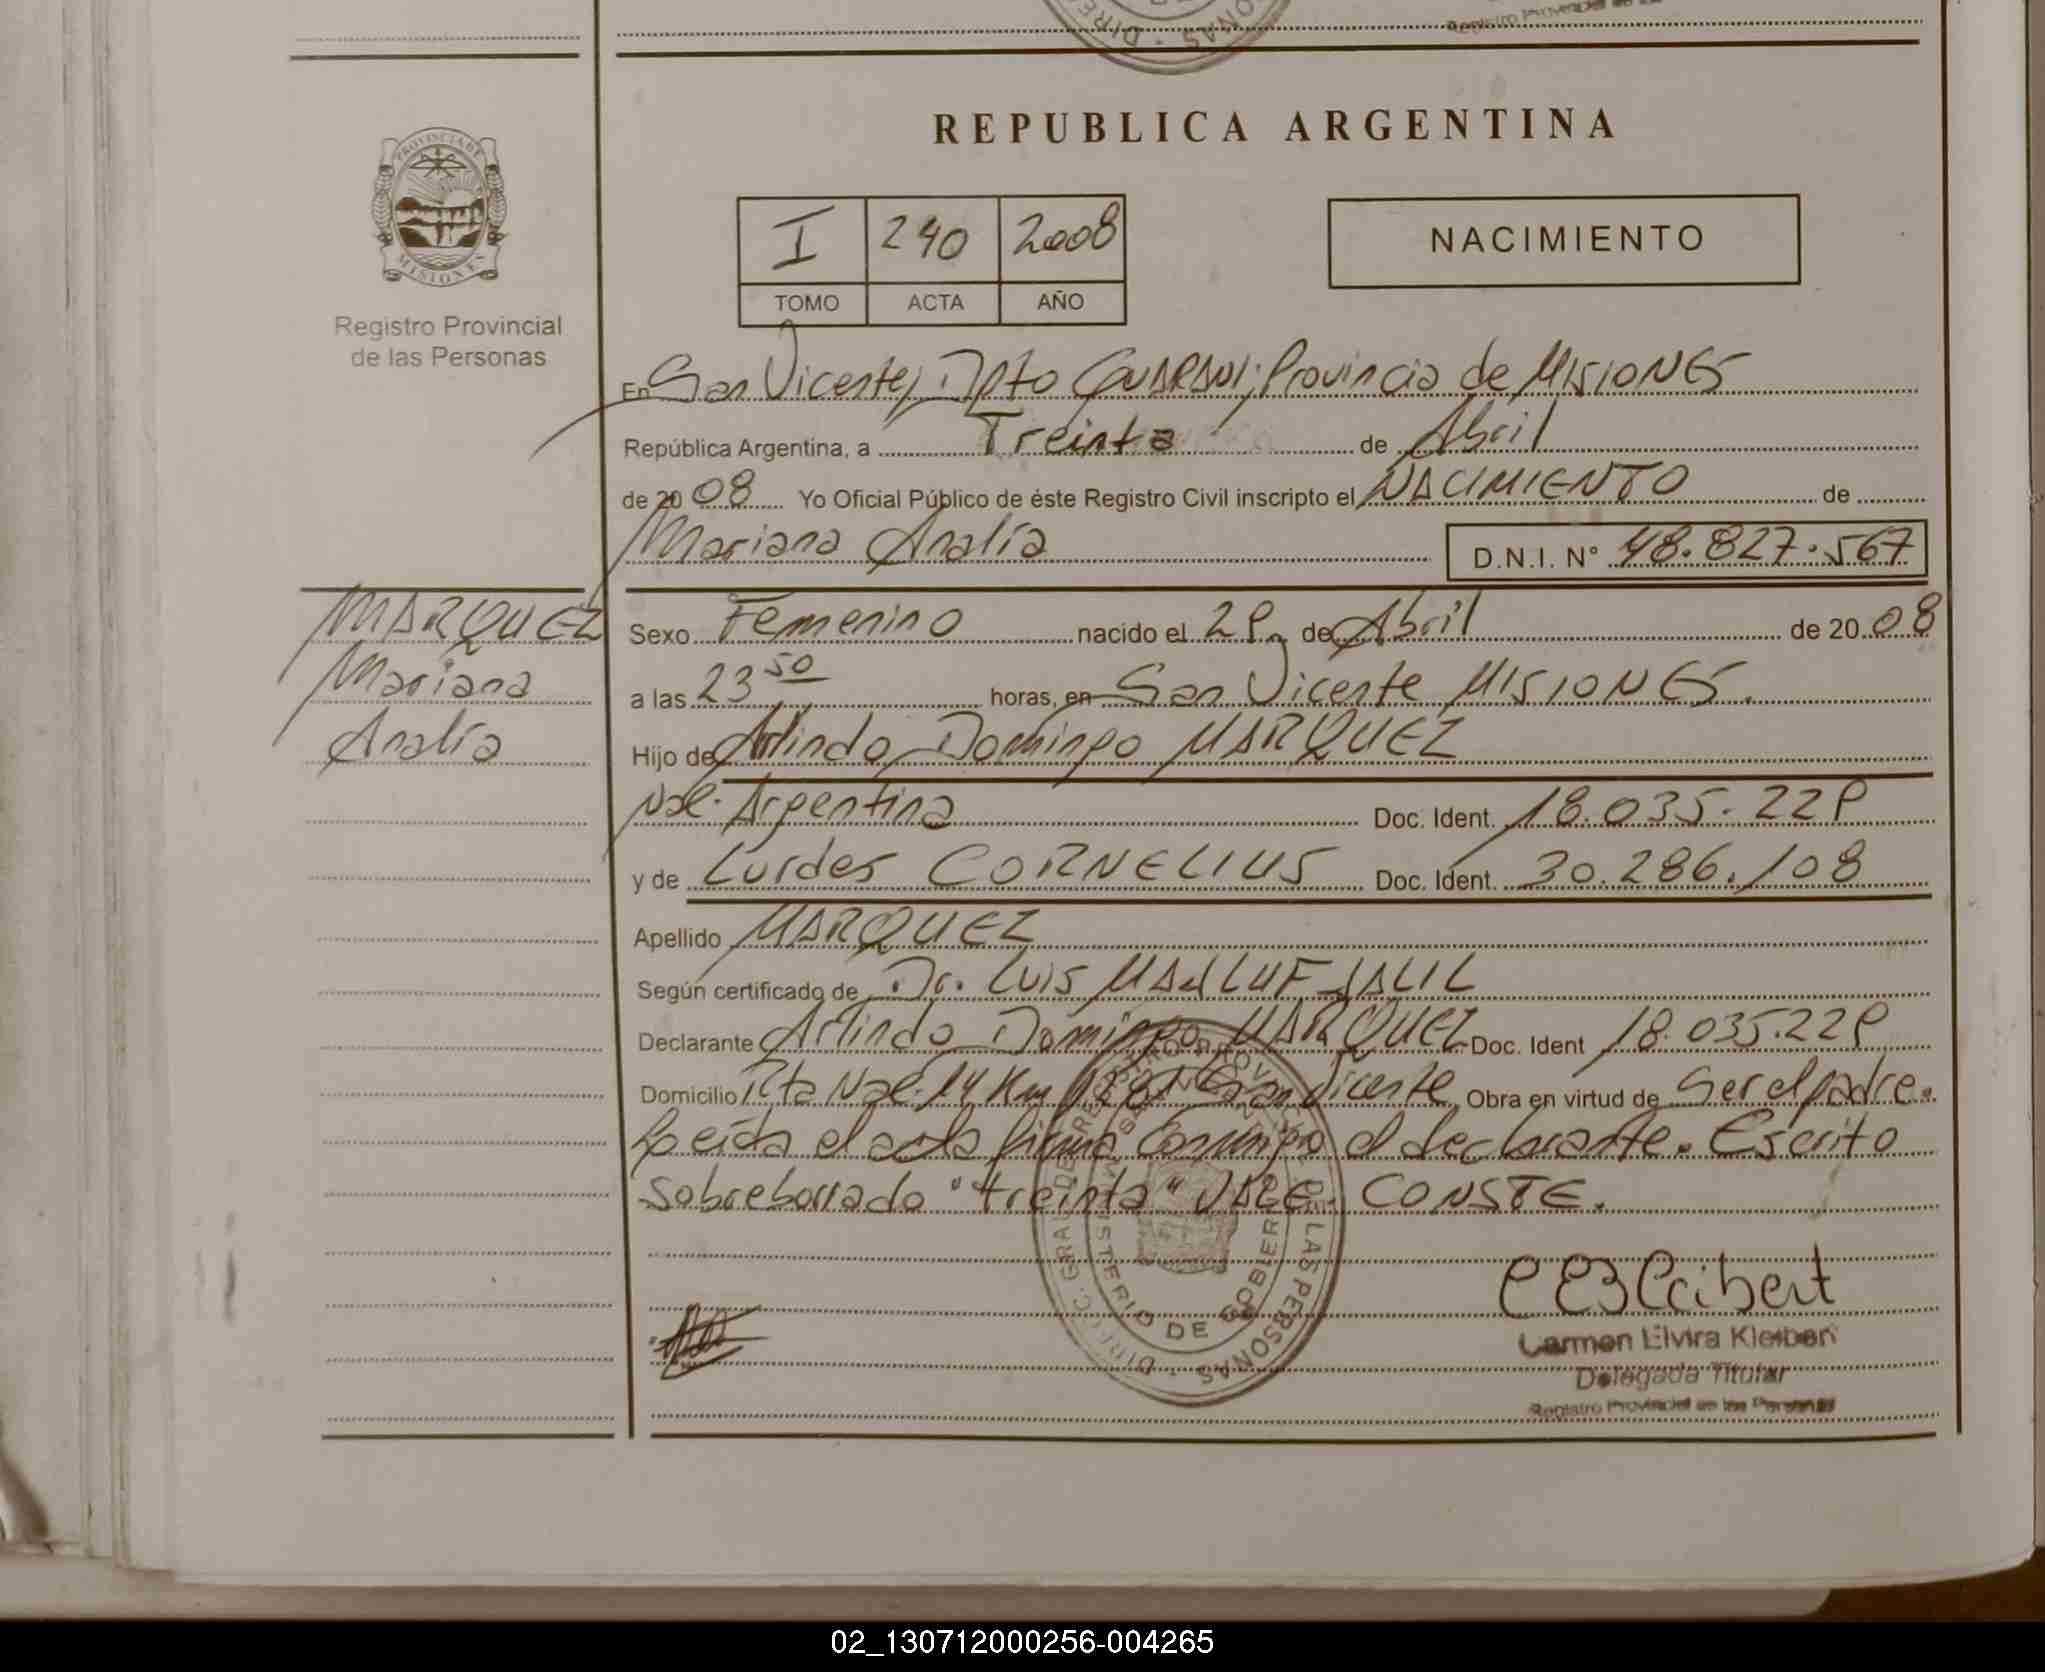 REPUBLICA ARGENTINA
PROVINCIA DE
MISIONES
Registro Provincial
de las Personas
I 240 2008
TOMO ACTA AÑO
NACIMIENTO
En San Vicente, Dpto GUARANI; Provincia de MISIONES
República Argentina, a Treinta de Abril
de 2008 Yo Oficial Público de éste Registro Civil inscripto el NACIMIENTO de
Mariana Analía D.N.I. Nº 48.827.567
MARQUEZ
Mariana
Analía
Sexo Femenino nacido el 29 de Abril de 2008
a las 23 50 horas, en San Vicente MISIONES.
Hijo de Arlindo Domingo MARQUEZ
Nac. Argentina Doc. Ident. 18.035.229
y de Lurdes CORNELIUS Doc. Ident. 30.286.108
Apellido MARQUEZ
Según certificado de Dr. LUIS MALLUF JALIL
Declarante Arlindo Domingo MARQUEZ Doc. Ident 18.035.229
Domicilio Rta Nac. 14 Km San Vicente Obra en virtud de Ser el padre.
Leída el acta firma Conmigo el declarante. Escrito
Sobreborrado "treinta" VALE. CONSTE.
DIREC. GRAL. DE REGISTRO PROVINCIAL DE LAS PERSONAS
MINISTERIO DE GOBIERNO
Carmen Elvira Kleibert
Delegada Titular
Registro Provincial de las Personas
02_130712000256-004265